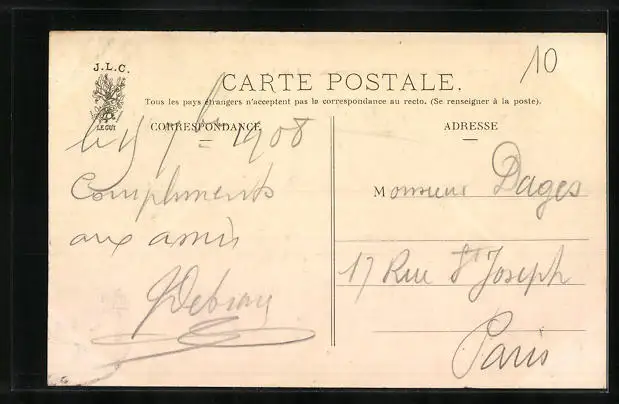 10
J.L.C.
LE GUI
CARTE POSTALE.
Tous les pays étrangers n'acceptent pas la correspondance au recto. (Se renseigner à la poste).
CORRESPONDANCE
1908
Compliments
aux amis
ADRESSE
Monsieur Dages
17 Rue St Joseph
Paris